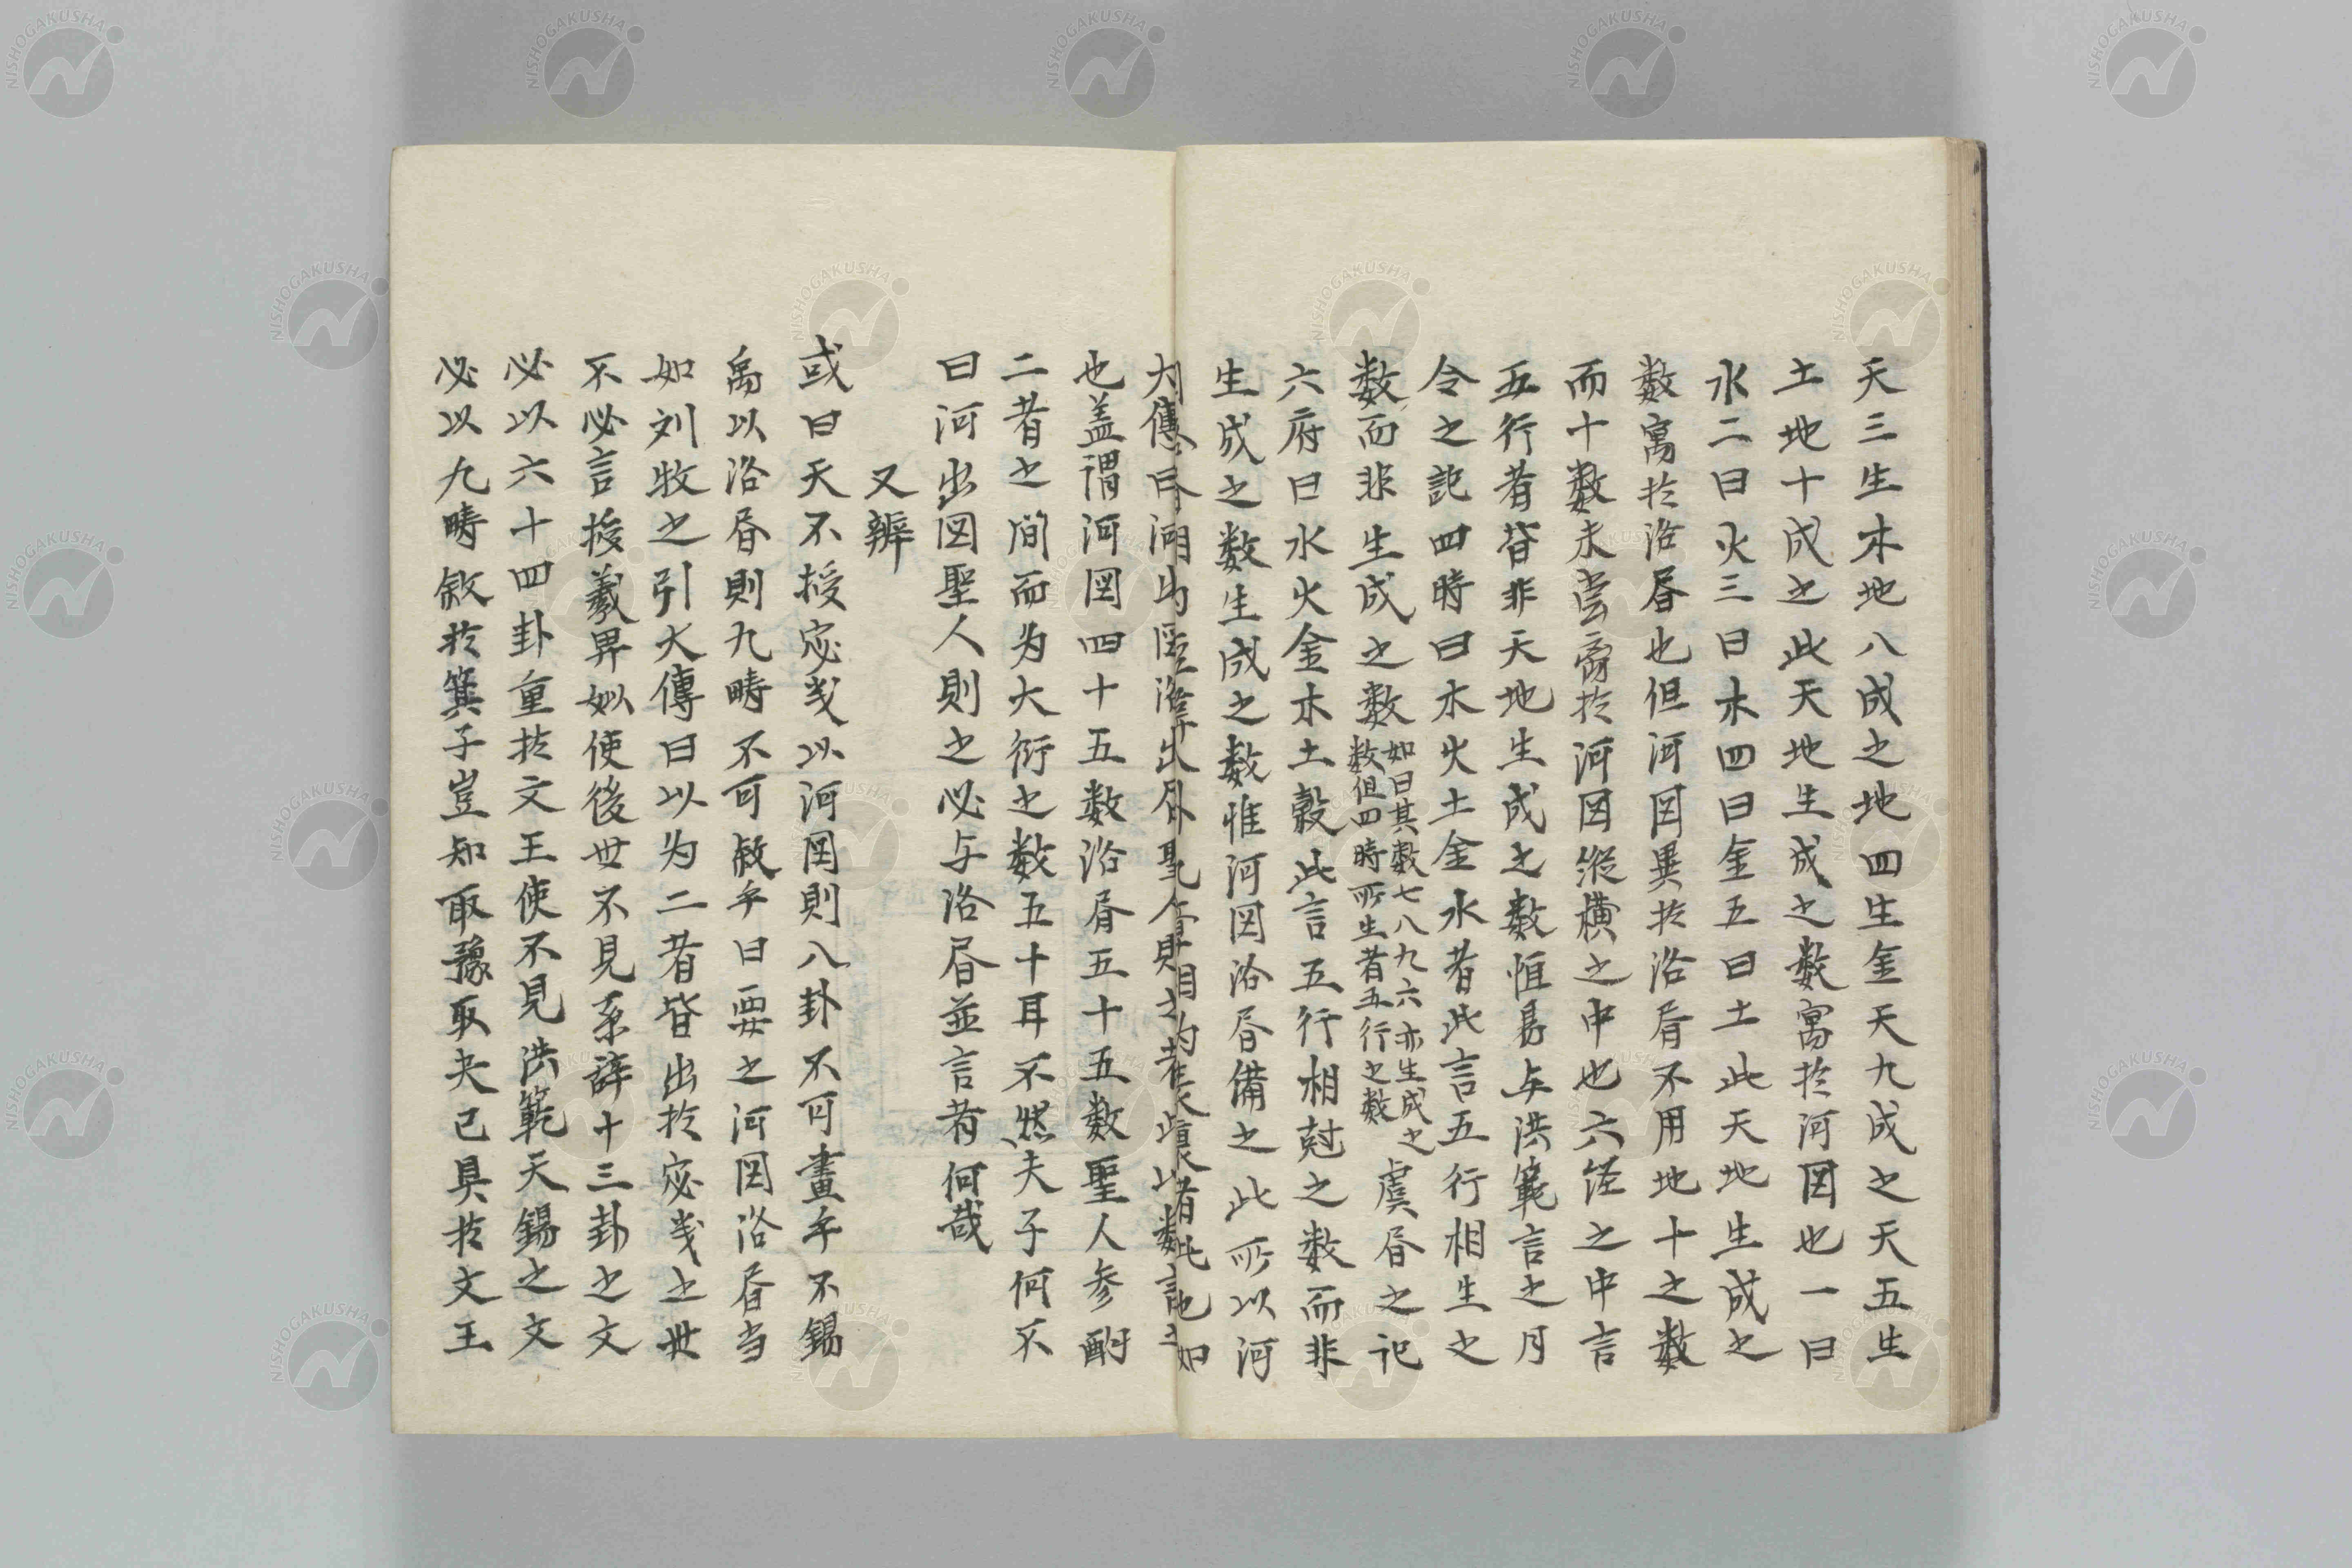 天三生木地八成之地四生金天九成之天五生
土地十成之此天地生成之数寓於河図也一曰
水二曰火三曰木四曰金五曰土此天地生成之
数寓於洛書也但河図異於洛書不用地十之数
而十数未甞於河図縦横之中也六経之中言
五行者皆非天地生成之数惟易与洪範言之月
令之記四時曰木火土金水者此言五行相生之
数而非生成之数
如曰其数七八九六亦生成之
数但四時所生者五行之数
虞書之記
六府曰水火金木土穀此言五行相尅之数而非
生成之数生成之数惟河図洛書備之此所以河
也盖謂河図四十五数洛書五十五数聖人参酌
二者之間而为大衍之数五十耳不然夫子何不
曰河出図聖人則之必与洛書並言者何哉
又辨
或曰天不授宓戏以河図則八卦不可畫乎不錫
禹以洛書則九畴不可敘乎曰要之河図洛書当
如刘牧之引大傳曰以为二者皆出於宓戏之世
不必言授羲畀姒使後世不見系辞十三卦之文
必以六十四卦重於文王使不見洪範天錫之文
必以九畴敘於箕子豈知取豫取夬已具於文王